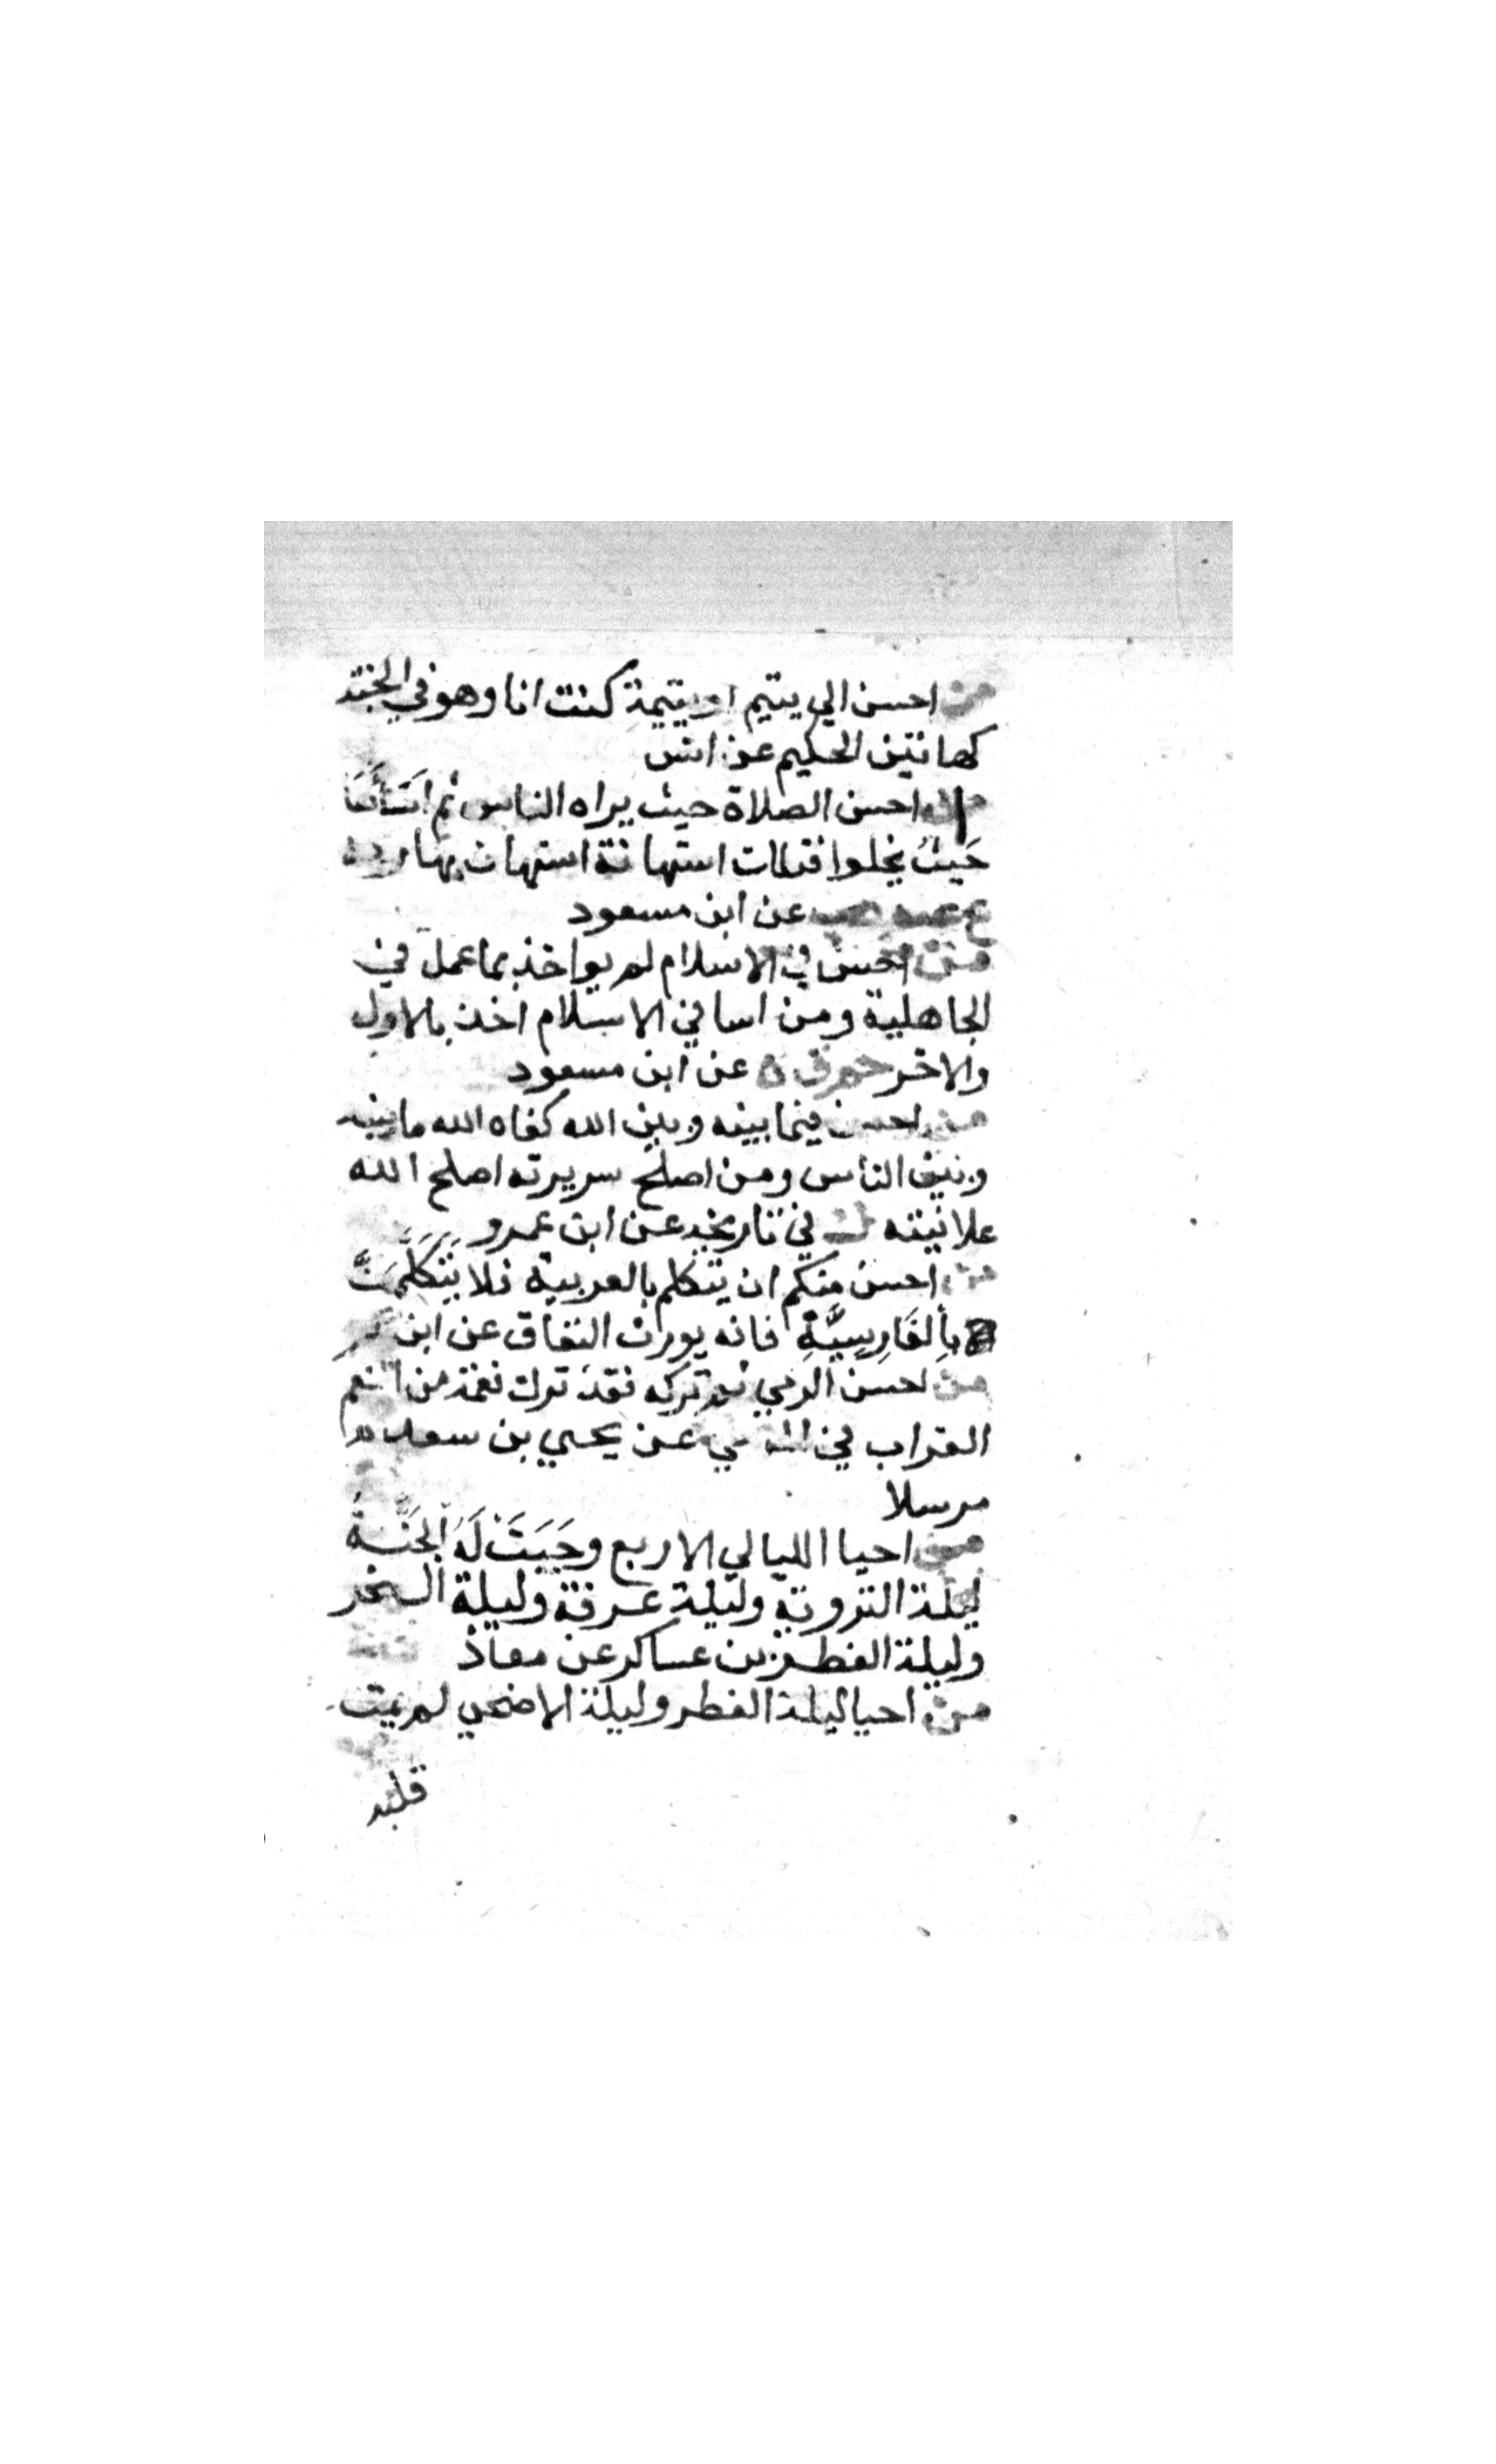 من احسن الي يتيم او يتيمة كنت انا وهو في الجنة
كهاتين الحكيم عن انس
من احسن الصلاة حيث يراه الناس ثم اسَأَهَا
حَيثُ يخلوا فتلك استهانة استهان بها ربه
ع عب هب عن ابن مسعود
من احسن في الاسلام لم يواخذ بما عمل في
الجاهلية ومن اسا في الاسلام اخذ بالاول
والاخر حم ق ه عن ابن مسعود
من احسن فيما بينه وبين الله كفاه الله ما بينه
وبين الناس ومن اصلح سريرته اصلح الله
علانيته ك في تاريخه عن ابن عمرو
من احسن منكم ان يتكلم بالعربية فلا يَتَكَلَّمَنَّ
بِالفَارِسِيَّةِ فانه يورث النفاق عن ابن
من احسن الرمي ثم تركه فقد ترك نعمة من النعم
القراب في الرمي عن يحيي بن سعيد
مرسلا
من احيا الليالي الاربع وجَبَتْ لَهُ الجَنَّةُ
ليلة التروية وليلة عرفة وليلة النحر
وليلة الفطر بن عساكر عن معاذ
من احيا ليلة الفطر وليلة الاضحي لم يمت
قلبه